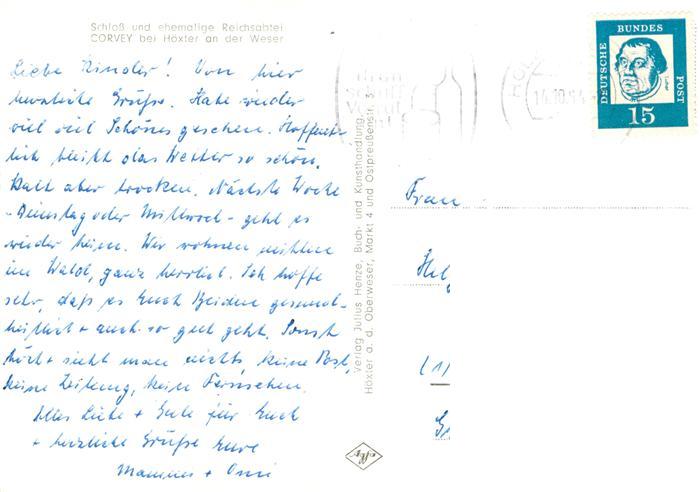 Schloß und ehemalige Reichsabtei
CORVEY bei Höxter an der Weser
Liebe Kinder! Von hier
herzliche Grüße. Habe wieder
viel viel Schönes gesehen. Hoffent-
lich bleibt das Wetter so schön.
Kalt aber trocken. Nächste Woche
- Dienstag oder Mittwoch - geht es
wieder heim. Wir wohnen mitten
im Wald, ganz herrlich. Ich hoffe
sehr, daß es Euch Beiden gesund-
heitlich + auch so gut geht. Sonst
hört + sieht man nichts, keine Post,
keine Zeitung, kein Fernsehen.
Alles Liebe + Gute für Euch
+ herzliche Grüße Eure
+ Omi
Verlag Julius Henze, Buch- und Kunsthandlung,
Höxter a. d. Oberweser, Markt 4 und Ostpreußenstr. 3
Agfa
DEUTSCHE BUNDES POST
Luther
15
Frau
Hel
(1)